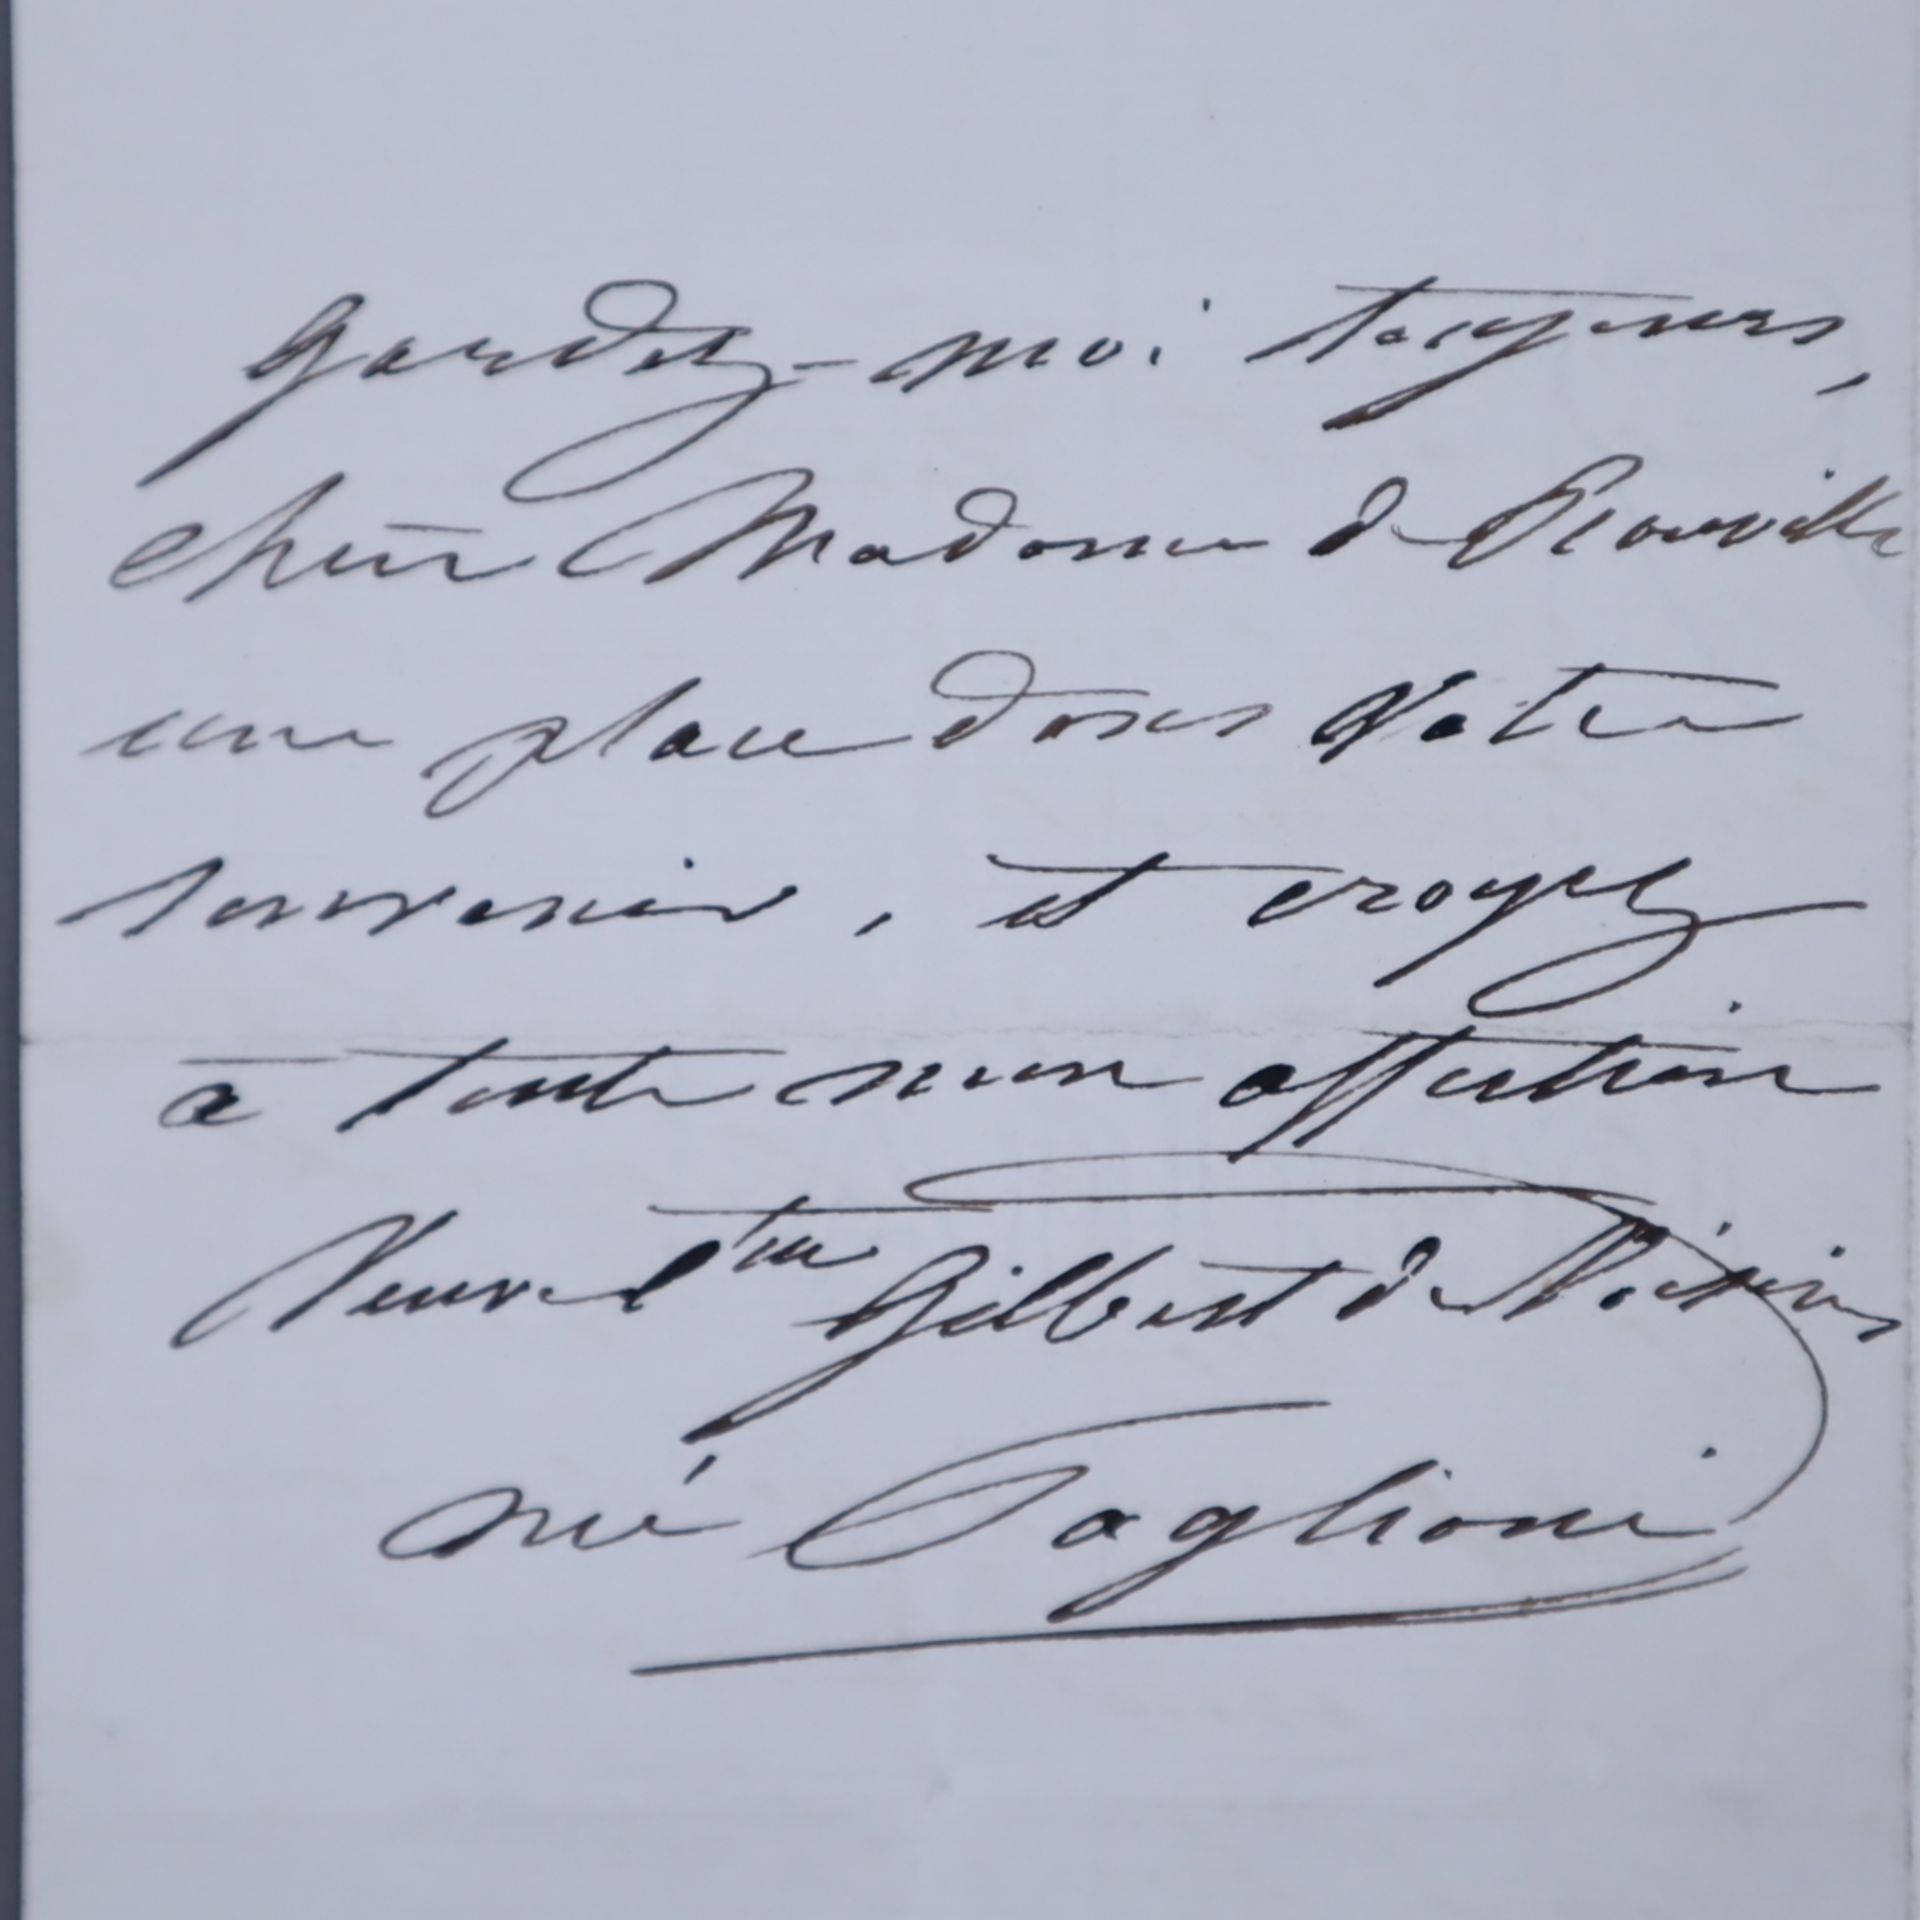 gardez-moi toujours,
chère Madame de
une place dans votre
souvenir, et croyez
à toute mon affection
Veuve Ctesse Gilbert de Voisins
née Taglioni